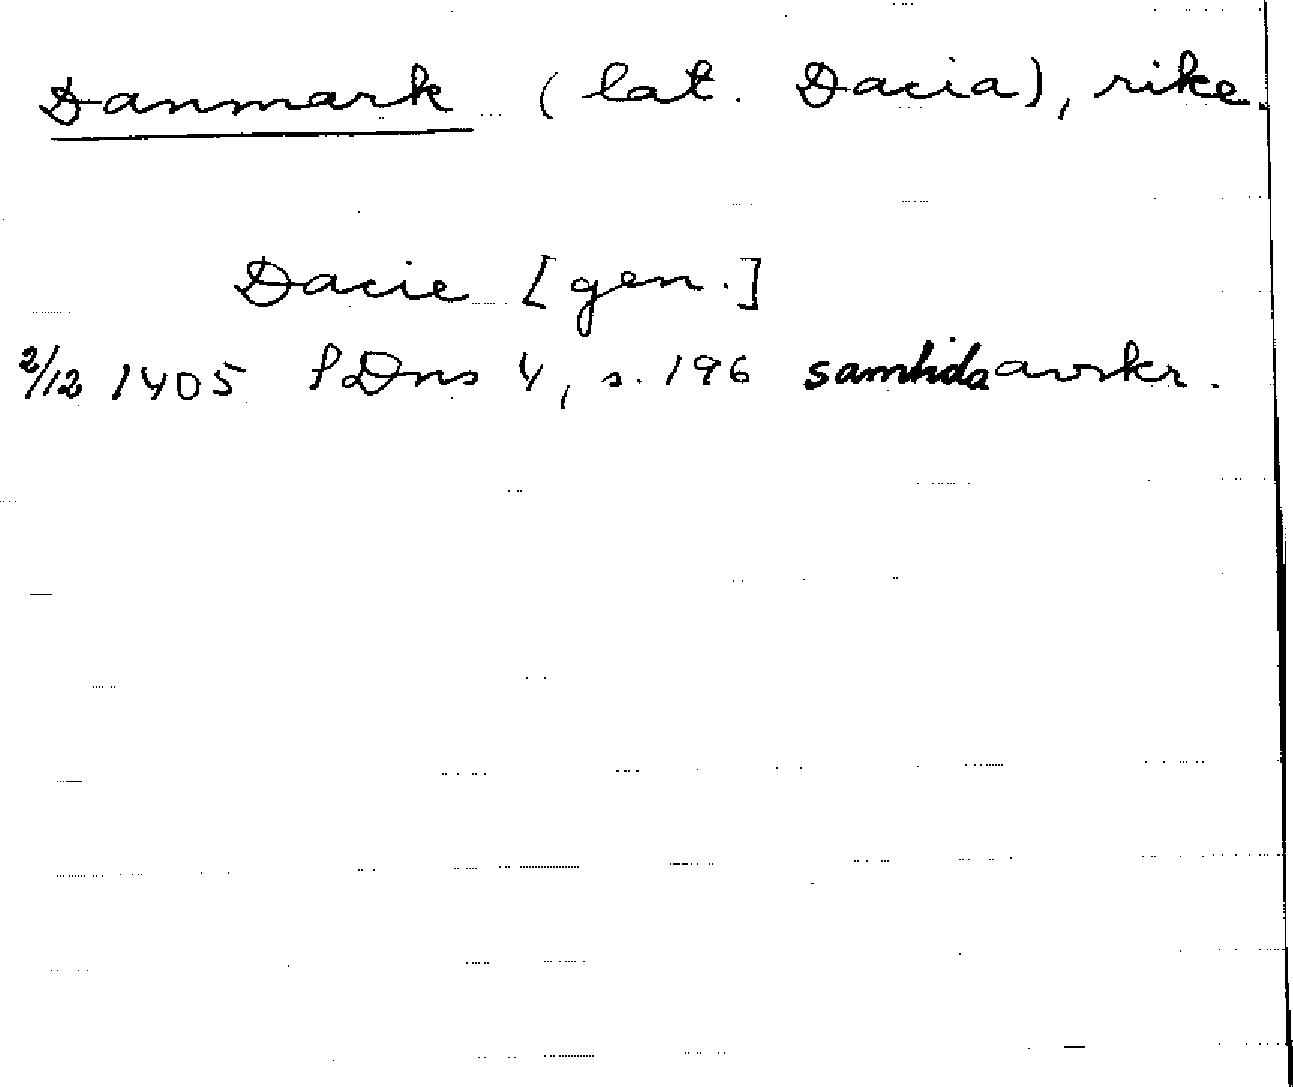 Danmark (lat. Dacia), rike.
Dacie [gen.]
2/12 1405 SDns 4, s. 196 samtida avskr.